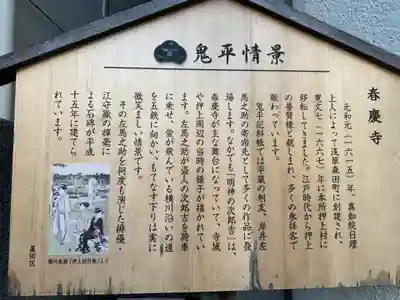 鬼平情景
春慶寺
元和元(一六一五)年、真如院日理
上人によって浅草森田町に創建され、
寛文七(一六六七)年に本所押上村に
移転してきました。江戸時代から「押上
の普賢様」と親しまれ、多くの参拝客で
賑わっています。
鬼平犯科帳では平蔵の剣友、岸井左
馬之助の寄宿先として多くの作品に登
場します。なかでも「明神の次郎吉」は、
春慶寺が主な舞台になっていて、寺域
や押上周辺の当時の様子が描かれてい
ます。左馬之助が盗人の次郎吉を荷車
に乗せ、蛍が飛んでいる横川沿いの道
を五鉄に向かい、もてなす下りは実に
微笑ましい情景です。
その左馬之助を何度も演じた俳優・
江守徹の揮毫に
よる石碑が平成
十五年に建てら
れています。
「押上村行楽」より
墨田区